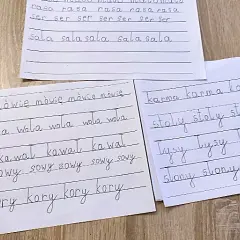 rasa rasa rasa rasa rasa
ser ser ser ser ser ser
sala sala sala sala
mówię mówię mówię
wola wola wola wola
kawał kawał kawał
sowy sowy sowy sowy
kory kory kory
karma karma
stoły stoły stoły
łysy łysy łysy
słony słony